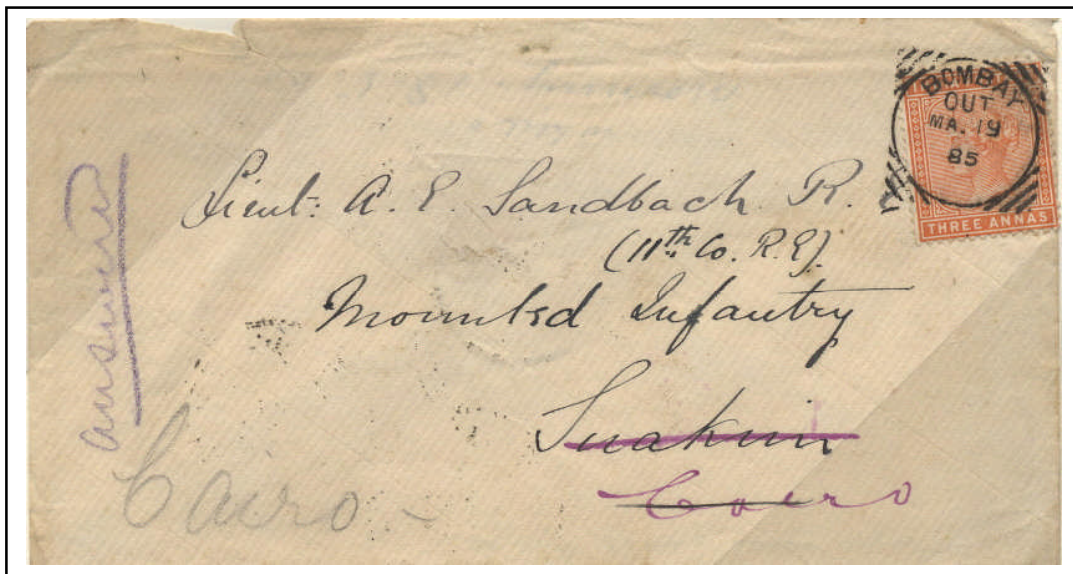 BOMBAY
OUT
MA. 19
85
THREE ANNAS
Lieut: A. E. Sandbach R. E
(11th Co. R.E).
Mounted Infantry
Suakim
Cairo
Cairo -
answered